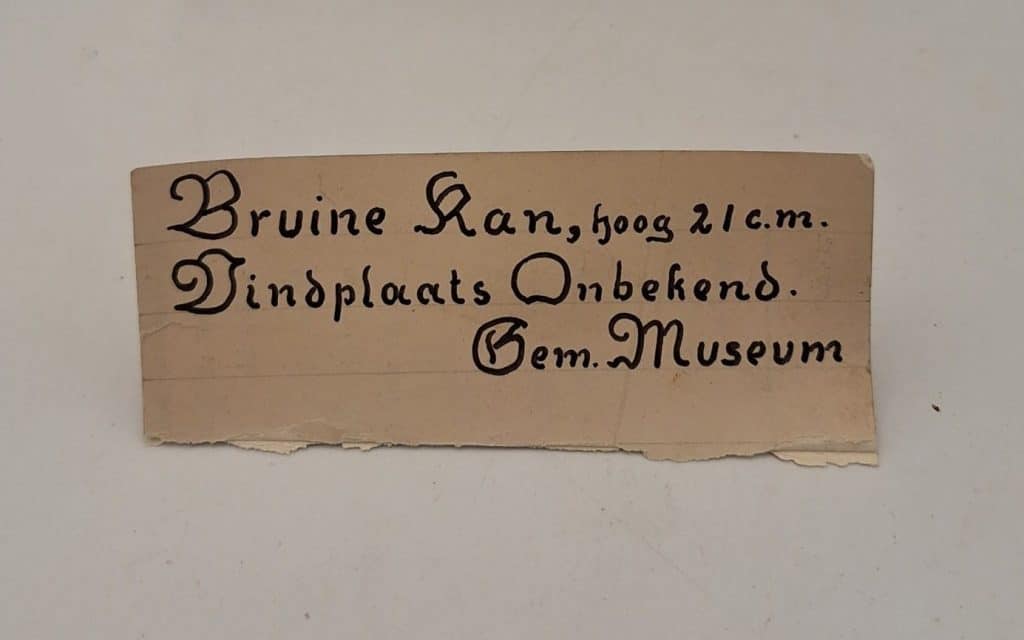 Bruine Kan, hoog 21 c.m.
Vindplaats Onbekend.
Gem. Museum